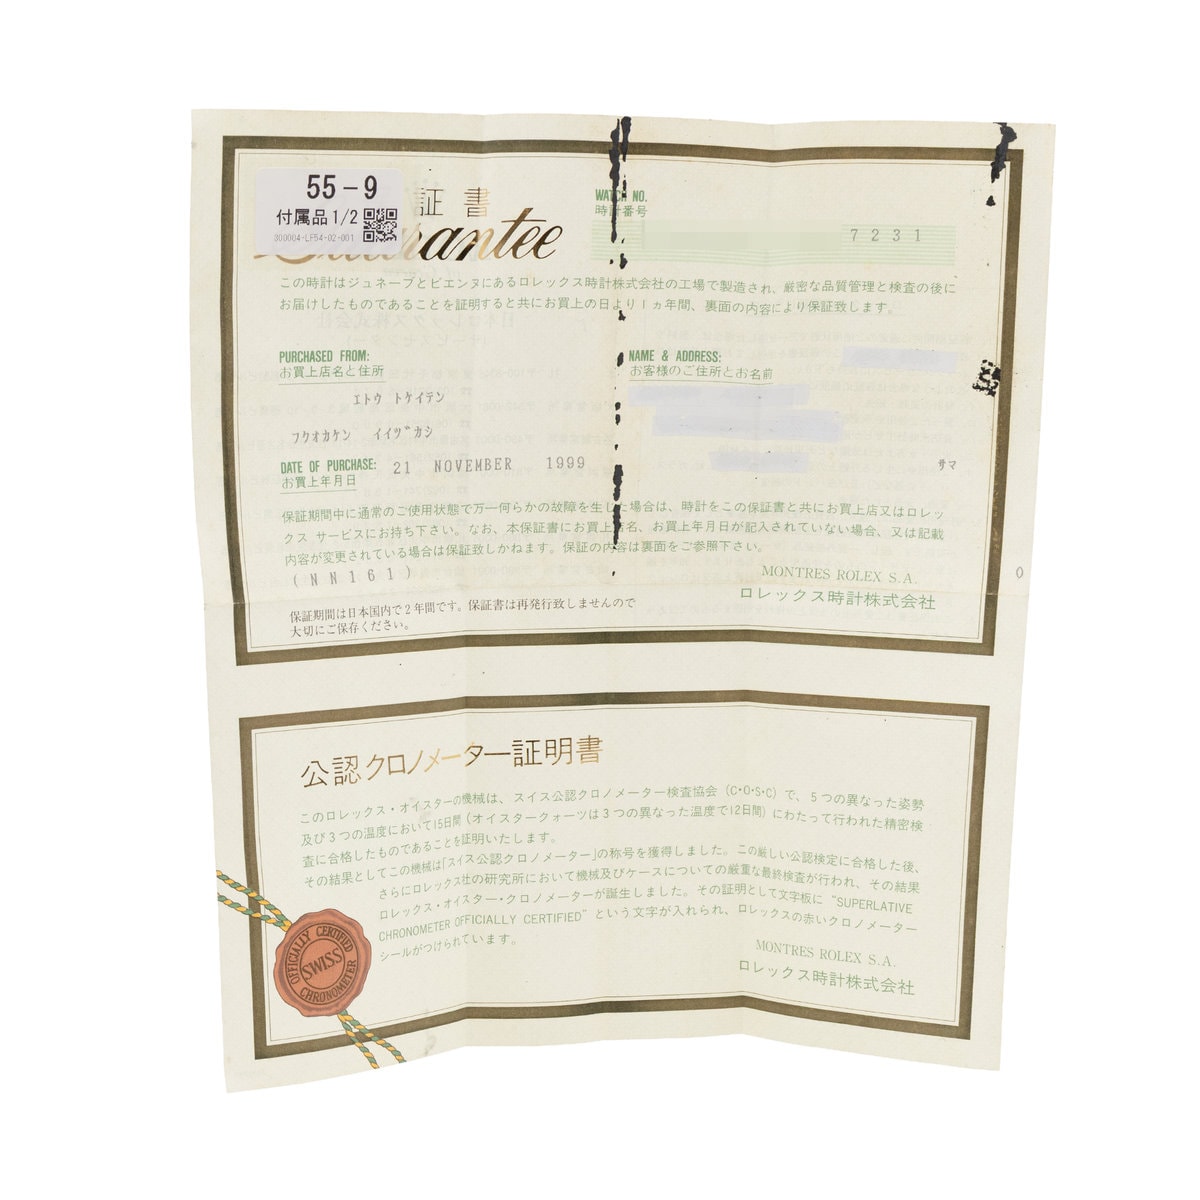 55-9
付属品1/2
300004-LF54-02-001
証書
rantee
WATCH NO.
時計番号
7231
この時計はジュネーブとビエンヌにあるロレックス時計株式会社の工場で製造され、厳密な品質管理と検査の後に
お届けしたものであることを証明すると共にお買上の日より1ヵ年間、裏面の内容により保証致します。
PURCHASED FROM:
お買上店名と住所
エトウ トケイテン
フクオカケン イイヅカシ
NAME & ADDRESS:
お客様のご住所とお名前
サマ
DATE OF PURCHASE: 21 NOVEMBER 1999
お買上年月日
保証期間中に通常のご使用状態で万一何らかの故障を生じた場合は、時計をこの保証書と共にお買上店又はロレッ
クス サービスにお持ち下さい。なお、本保証書にお買上店名、お買上年月日が記入されていない場合、又は記載
内容が変更されている場合は保証致しかねます。保証の内容は裏面をご参照下さい。
(NN161)
MONTRES ROLEX S.A.
ロレックス時計株式会社
0
保証期間は日本国内で2年間です。保証書は再発行致しませんので
大切にご保存ください。
公認クロノメーター証明書
このロレックス・オイスターの機械は、スイス公認クロノメーター検査協会(C・O・S・C)で、5つの異なった姿勢
及び3つの温度において15日間(オイスタークォーツは3つの異なった温度で12日間)にわたって行われた精密検
査に合格したものであることを証明いたします。
その結果としてこの機械は「スイス公認クロノメーター」の称号を獲得しました。この厳しい公認検定に合格した後、
さらにロレックス社の研究所において機械及びケースについての厳重な最終検査が行われ、その結果
ロレックス・オイスター・クロノメーターが誕生しました。その証明として文字板に "SUPERLATIVE
CHRONOMETER OFFICIALLY CERTIFIED" という文字が入れられ、ロレックスの赤いクロノメーター
シールがつけられています。
MONTRES ROLEX S.A.
ロレックス時計株式会社
OFFICIALLY CERTIFIED
SWISS
CHRONOMETER